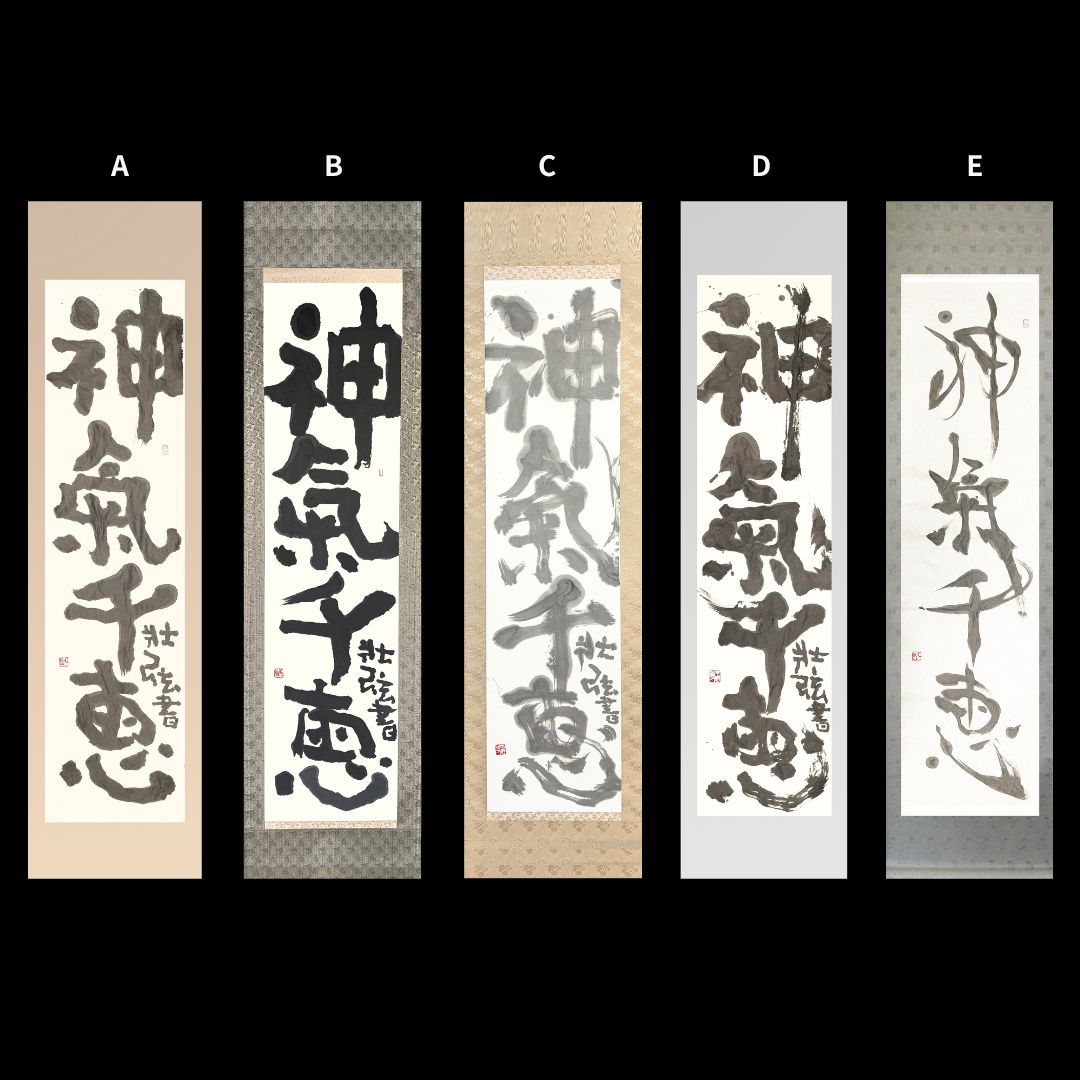 A
B
C
D
E
神氣千恵
壮弦書
神氣千恵
壮弦書
神氣千恵
壮弦書
神氣千恵
壮弦書
神氣千恵